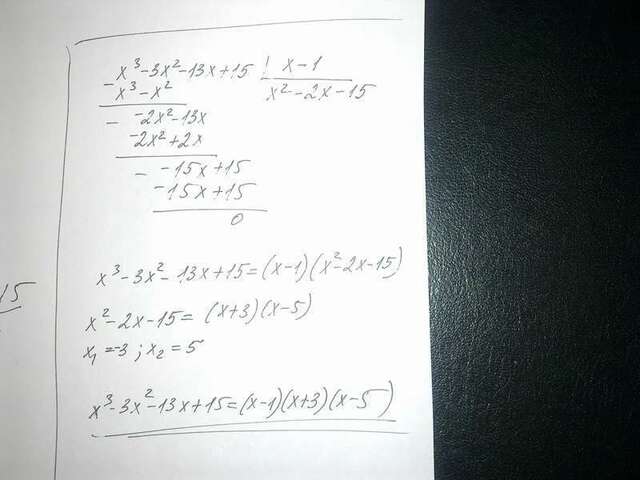 x³-3x²-13x+15 | x-1
- x³-x² x²-2x-15
- -2x²-13x
-2x²+2x
- -15x+15
-15x+15
0
x³-3x²-13x+15=(x-1)(x²-2x-15)
15
x²-2x-15= (x+3)(x-5)
x₁=-3; x₂=5
x³-3x²-13x+15=(x-1)(x+3)(x-5)